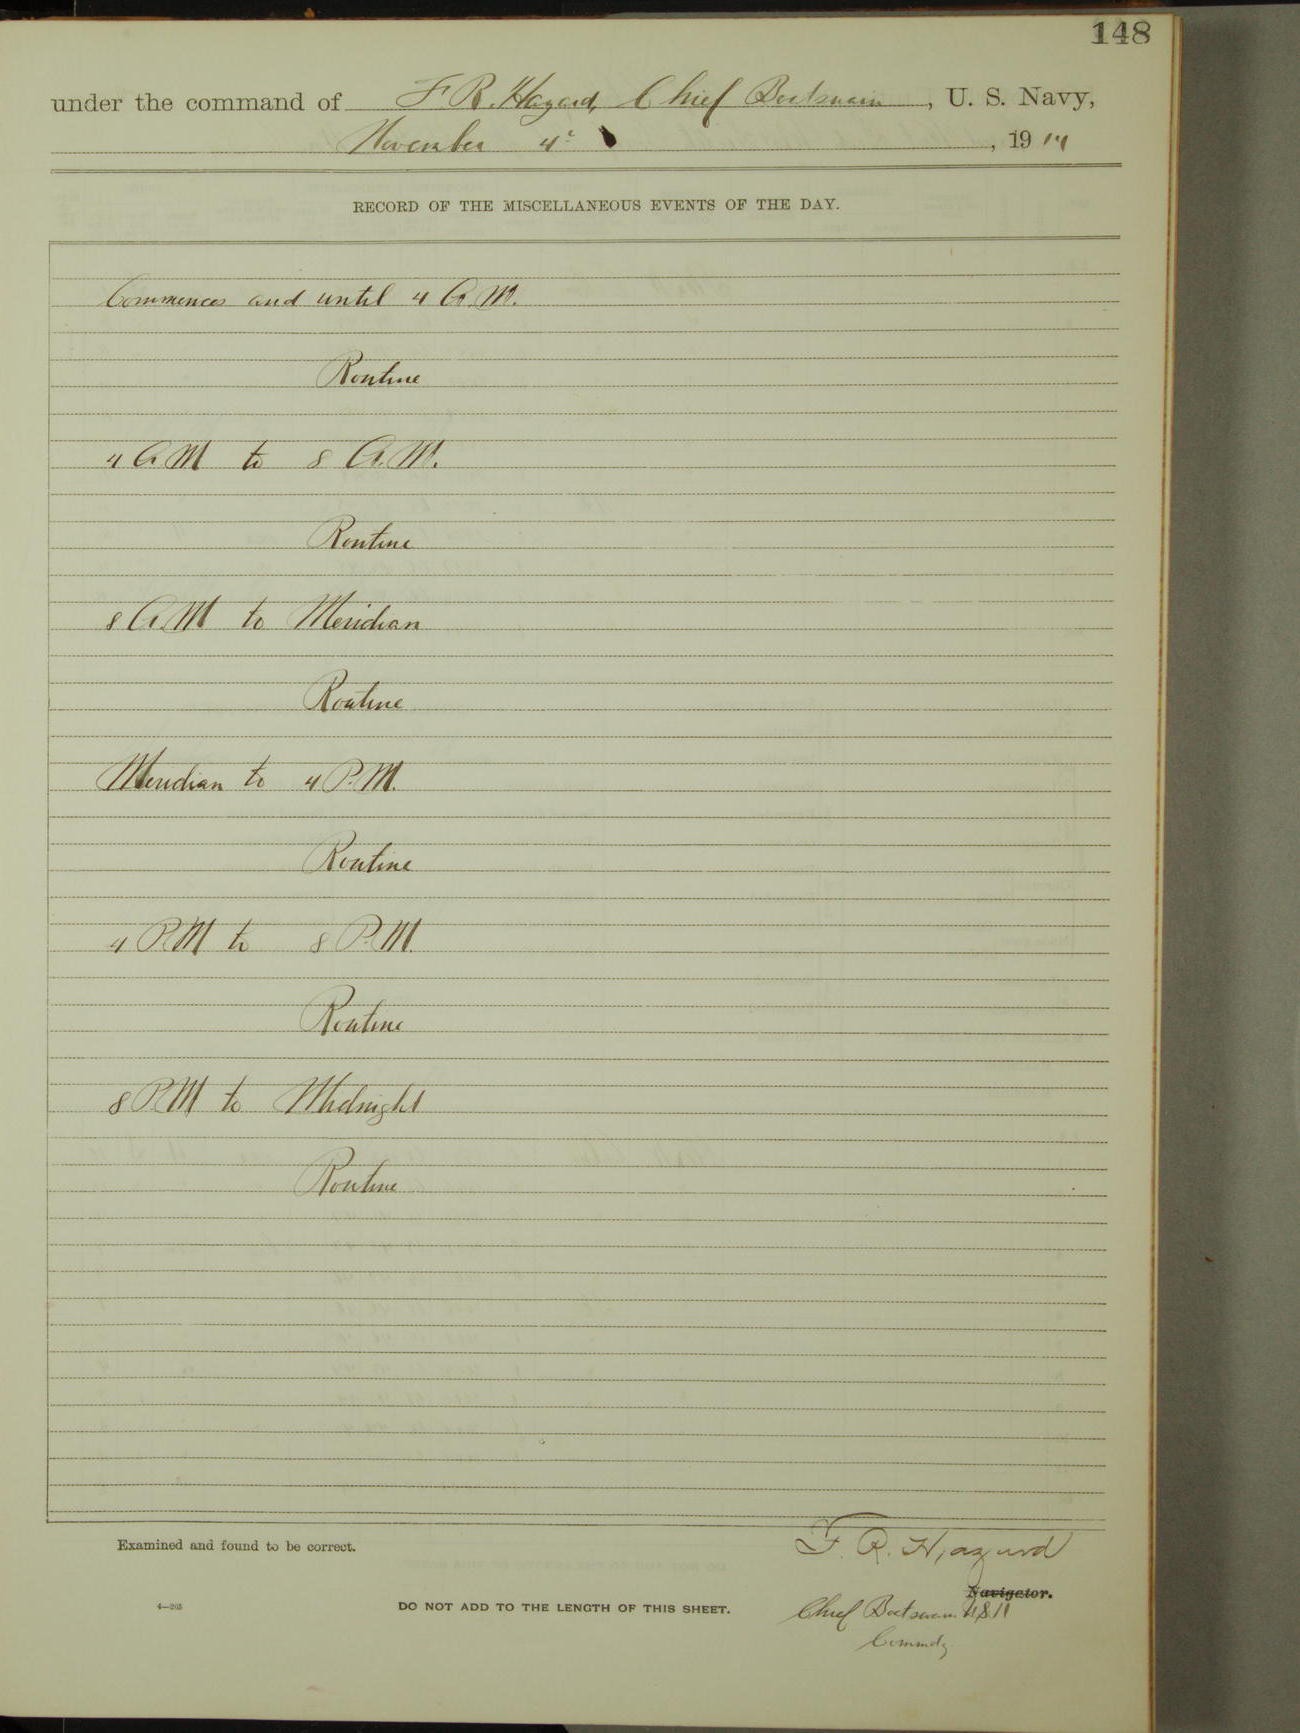 148
under the command of F R. Hazard, Chief Boatswain, U. S. Navy,
November 4th, 1914
RECORD OF THE MISCELLANEOUS EVENTS OF THE DAY.
Commences and until 4 A.M.
Routine
4 A M to 8 A. M.
Routine
8 A. M to Meridian
Routine
Meridian to 4 P. M.
Routine
4 P. M to 8 P. M.
Routine
8 P. M to Midnight
Routine
Examined and found to be correct.
F. R. Hazard
Navigator.
4—205
DO NOT ADD TO THE LENGTH OF THIS SHEET.
Chief Boatswain U S N
Commdg